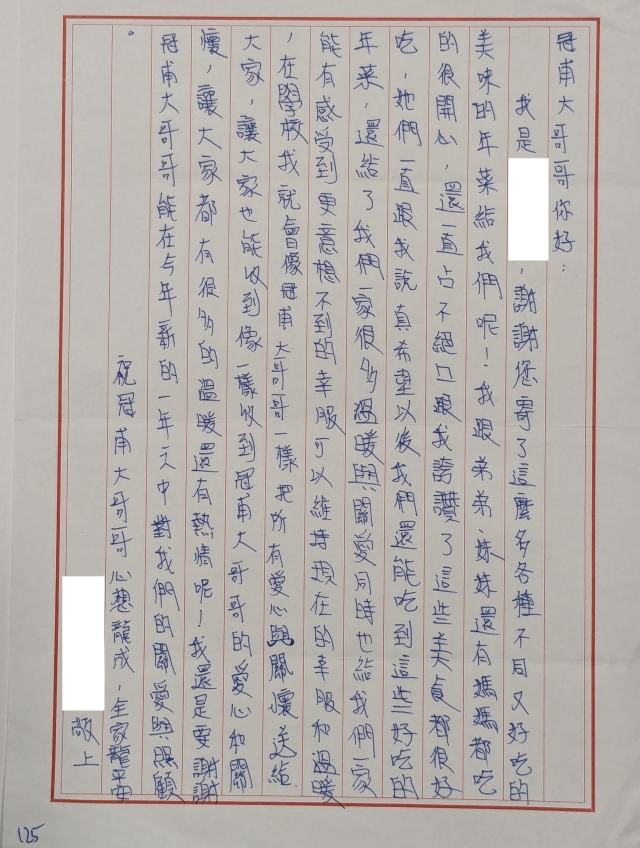 冠甫大哥哥你好：
我是，謝謝您寄了這麼多各種不同又好吃的
美味的年菜給我們呢！我跟弟弟、妹妹還有媽媽都吃
的很開心，還一直占不絕口跟我誇讚了這些美食都很好
吃，她們一直跟我說真希望以後我們還能吃到這些好吃的
年菜，還給了我們一家很多溫暖與關愛同時也給我們一家
能有感受到更意想不到的幸服可以維持現在的幸服和溫暖
，在學校我就會像冠甫大哥哥一樣把所有愛心與關懷送給
大家，讓大家也能收到像一樣收到冠甫大哥哥的愛心和關
懷，讓大家都有很多的溫暖還有熱情呢！我還是要謝謝
冠甫大哥哥能在今年新的一年之中對我們的關愛與照顧
。
祝冠甫大哥哥心想龍成，全家龍平安
敬上
125